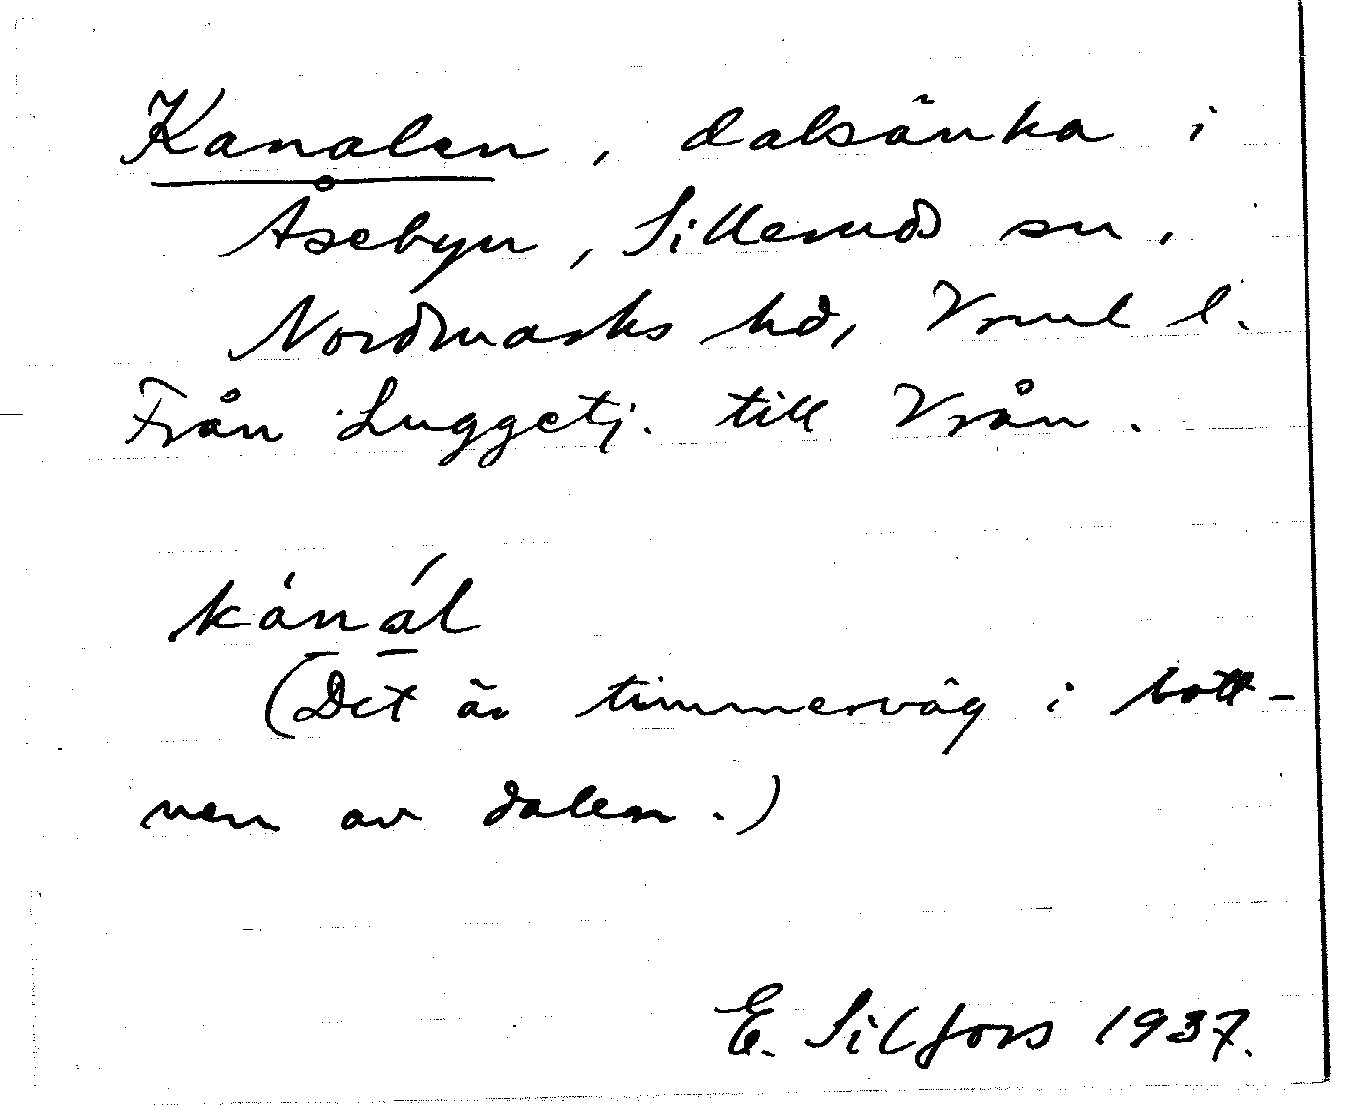 Kanalen, dalsänka i
Åsebyn, Silleruds sn,
Nordmarks hd, Vrml l.
Från Luggetj. till Vrån.
kánál
(Det är timmerväg i bott-
nen av dalen.)
E. Silfors 1937.